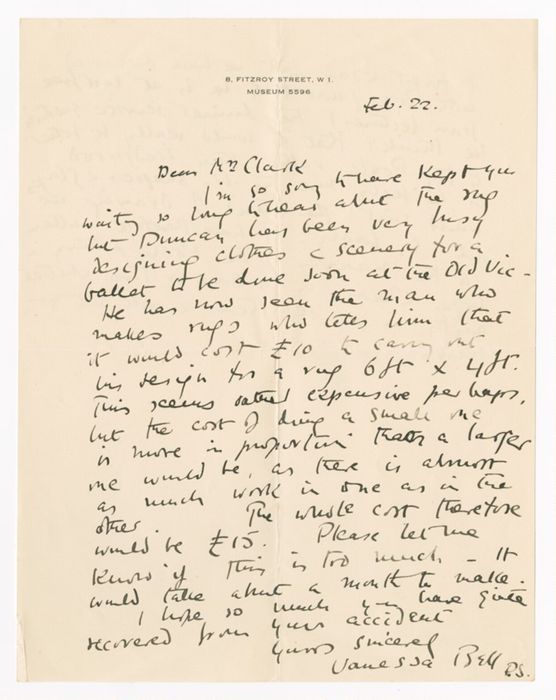 8, FITZROY STREET, W 1.
MUSEUM 5596
Feb. 22.
Dear Mrs Clark
I'm so sorry to have kept you
waiting so long to hear about the rug
but Duncan has been very busy
designing clothes & scenery for a
ballet to be done soon at the Old Vic -
He has now seen the man who
makes rugs who tells him that
it would cost £10 to carry out
his design for a rug 6ft x 4ft.
This seems rather expensive perhaps,
but the cost of doing a small one
is more in proportion than a larger
one would be, as there is almost
as much work in one as in the
other. The whole cost therefore
would be £15. Please let me
know if this is too much - It
would take about a month to make.
I hope so much you have quite
recovered from your accident
yours sincerely
Vanessa Bell P.S.